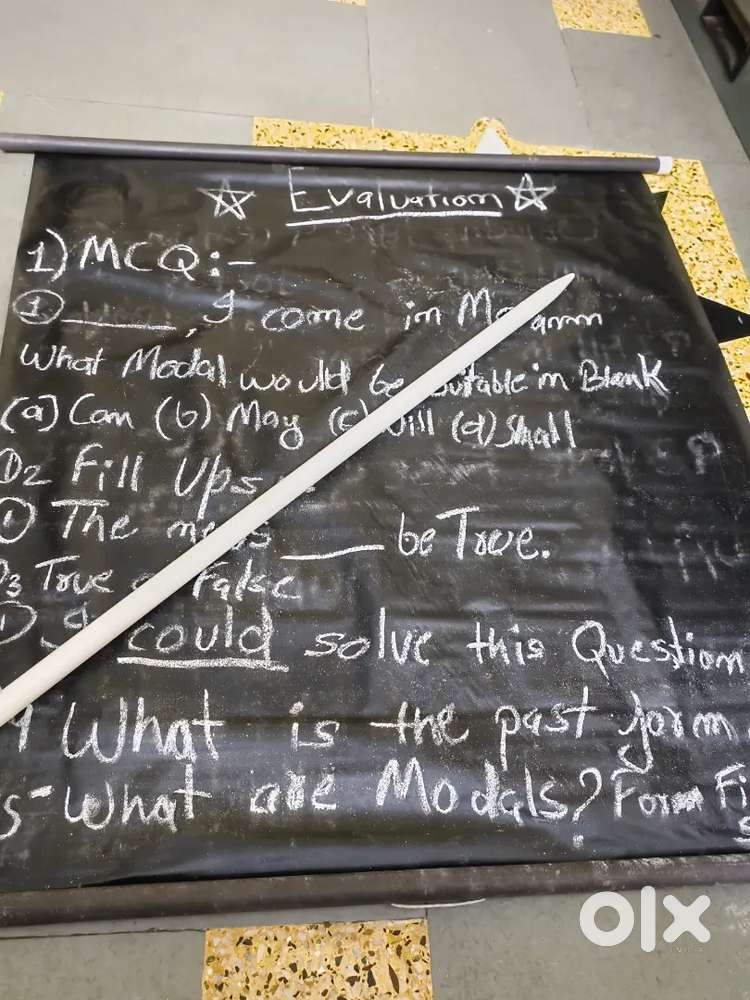 Evaluation
1) MCQ:-
① ____, I come in
What Modal would be suitable in Blank
(a) Can (b) May (c) Will (d) Shall
Q2 Fill Ups
① The ____ be True.
Q3 True or False
① I could solve this Question
What is the past form
5- What are Modals? Form
olx